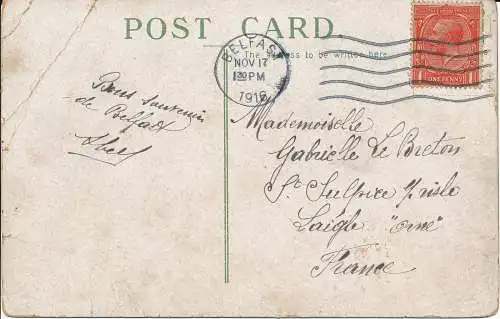 POST CARD
The address to be written here
BELFAST
NOV 17
1 30 PM
1916
ONE PENNY
Bons souvenirs
de Belfast
Abel
Mademoiselle
Gabrielle Le Breton
St Sulpice s/ risle
Laigle "orne"
France